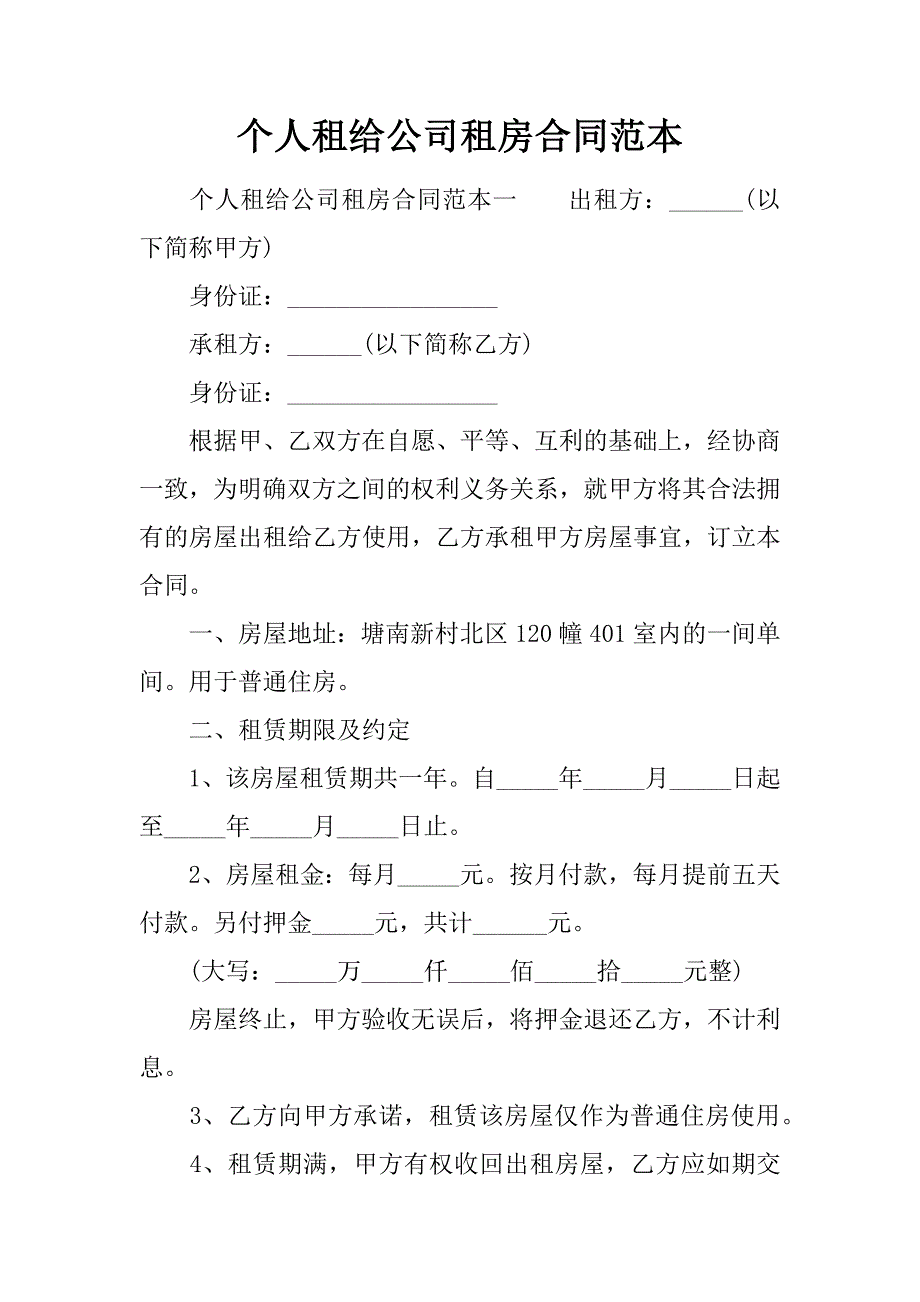 个人租给公司租房合同范本
个人租给公司租房合同范本一　　出租方：______(以
下简称甲方)
身份证：_________________
承租方：______(以下简称乙方)
身份证：_________________
根据甲、乙双方在自愿、平等、互利的基础上，经协商
一致，为明确双方之间的权利义务关系，就甲方将其合法拥
有的房屋出租给乙方使用，乙方承租甲方房屋事宜，订立本
合同。
一、房屋地址：塘南新村北区 120 幢 401 室内的一间单
间。用于普通住房。
二、租赁期限及约定
1、该房屋租赁期共一年。自_____年_____月_____日起
至_____年_____月_____日止。
2、房屋租金：每月_____元。按月付款，每月提前五天
付款。另付押金_____元，共计______元。
(大写：_____万_____仟_____佰_____拾_____元整)
房屋终止，甲方验收无误后，将押金退还乙方，不计利
息。
3、乙方向甲方承诺，租赁该房屋仅作为普通住房使用。
4、租赁期满，甲方有权收回出租房屋，乙方应如期交